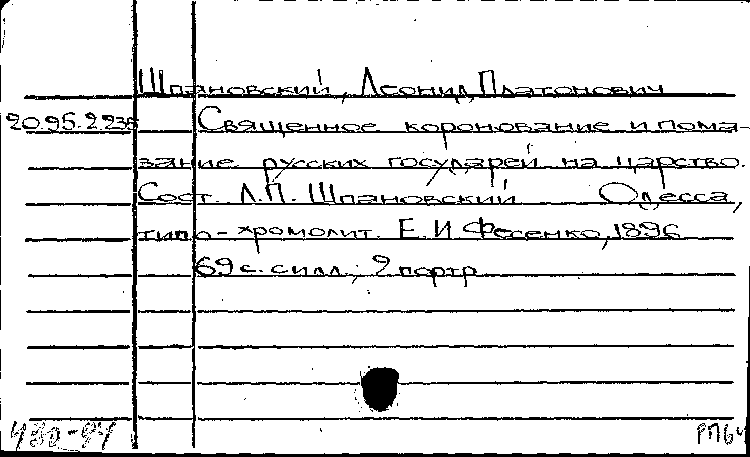 Шпановский, Леонид Платонович
20.95.2.236 Священное коронование и пома-
зание русских государей на царство.
Сост. Л.П. Шпановский Одесса,
типо-хромолит. Е.И Фесенко, 1896
69 с. с илл., 9 портр
480-94 РПБ4